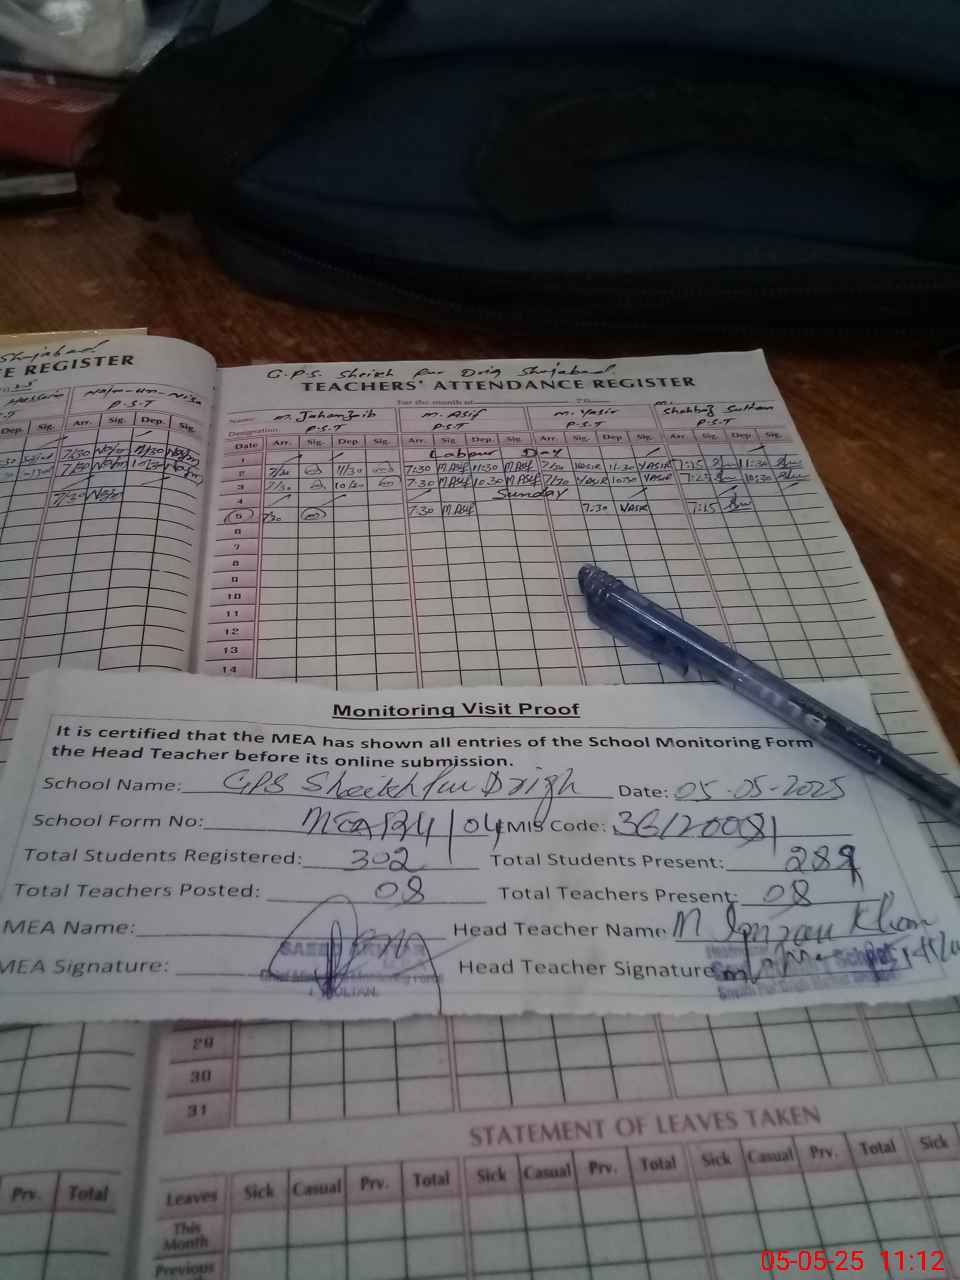 Shujabad
E REGISTER
Hussain Najm-un-Nisa
P.S.T
Dep. Sig. Arr. Sig. Dep. Sig.
G.P.S. Sheikh Pur Drig Shujabad.
TEACHERS' ATTENDANCE REGISTER
For the month of 20
Name M. Jahanzaib M. Asif M. Yasir M. Shahbaz Sultan
Designation P.S.T P.S.T P.S.T
Date Arr. Sig. Dep. Sig. Arr. Sig. Dep. Sig. Arr. Sig. Dep. Sig. Arr. Sig. Dep. Sig.
1 Labour Day
2 7/30 11/30 7:30 M Asif 11:30 M Asif 7/30 YASIR 11:30 YASIR 7:15 11:30
3 7/30 10/30 7:30 M Asif 10:30 M Asif 7/30 YASIR 10:30 YASIR 10:30
4 Sunday
5 7/30 7:30 M Asif 7:30 YASIR 7:15
6
7
8
9
10
11
12
13
14
Monitoring Visit Proof
It is certified that the MEA has shown all entries of the School Monitoring Form
the Head Teacher before its online submission.
School Name: GPS Sheikh Pur Drigh Date: 05-05-2025
School Form No: MIS Code: 36120081
Total Students Registered: 302 Total Students Present: 289
Total Teachers Posted: 08 Total Teachers Present: 08
MEA Name: Head Teacher Name M Imran Khan
MEA Signature: Head Teacher Signature
29
30
31
STATEMENT OF LEAVES TAKEN
Prv. Total Leaves Sick Casual Prv. Total Sick Casual Prv. Total Sick Casual Prv. Total Sick
This Month
Previous
05-05-25 11:12